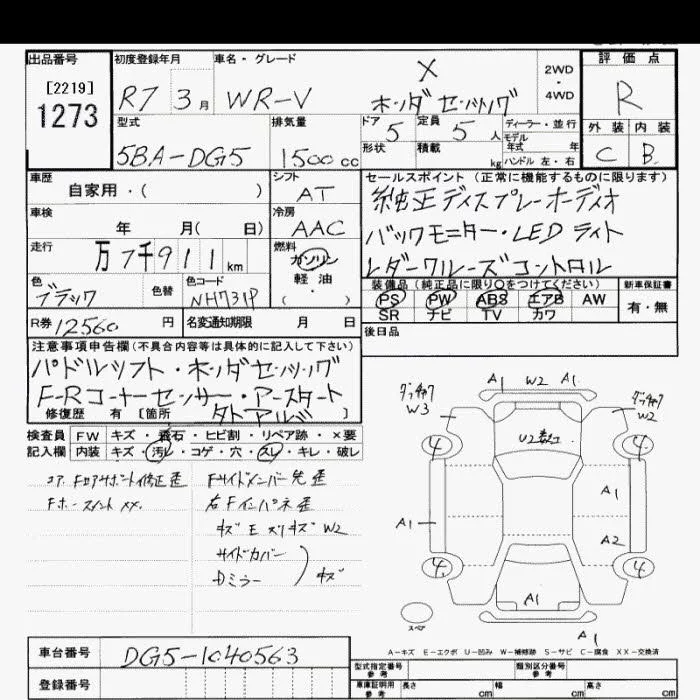 出品番号
[2219]
1273
初度登録年月
R7 3月
車名・グレード
X
WR-V ホンダセンシング
2WD
・
4WD
評価点
R
外装 内装
C B
型式
5BA-DG5
排気量
1500cc
ドア
5
定員
5人
形状
積載
kg
ディーラー・並行
モデル
年式 年
ハンドル 左・右
車歴
自家用・( )
シフト
AT
セールスポイント (正常に機能するものに限ります)
純正ディスプレーオーディオ
バックモニター・LEDライト
レダークルーズコントロル
車検
年 月( 日)
冷房
AAC
走行
万7千911km
燃料
ガソリン
軽油
・( )
色
ブラック
色替
色コード
NH731P
装備品 (純正品に限り○をつけてください)
PS PW ABS エアB AW
SR ナビ TV カワ
新車保証書
有・無
R券 12560円
名変通知期限 月 日
後日品
注意事項申告欄 (不具合内容等は具体的に記入して下さい)
パドルシフト・ホンダセンシング
F-Rコーナーセンサー・アースタート
タトアルジ
修復歴 有 [箇所 ]
検査員 FW キズ・飛石・ヒビ割・リペア跡・×要
記入欄 内装 キズ・汚レ・コゲ・穴・スレ・キレ・破レ
コア、Fロアサポート修正歪
Fホースメント××.
Fサイドメンバー先歪
右Fインパネ歪
キズ E スリキズ W2
サイドカバー
Dミラー
キズ
A1 W2 A1
W3
W2
U2数コ
4 4
A1
A1
A2
4 4
A1
スペア
A1
A-キズ E-エクボ U-凹み W-補修跡 S-サビ C-腐食 XX-交換済
車台番号 DG5-1040563
登録番号
型式指定番号
参考
類別区分番号
参考
車庫証明用
参考
長さ cm 幅 cm 高さ cm